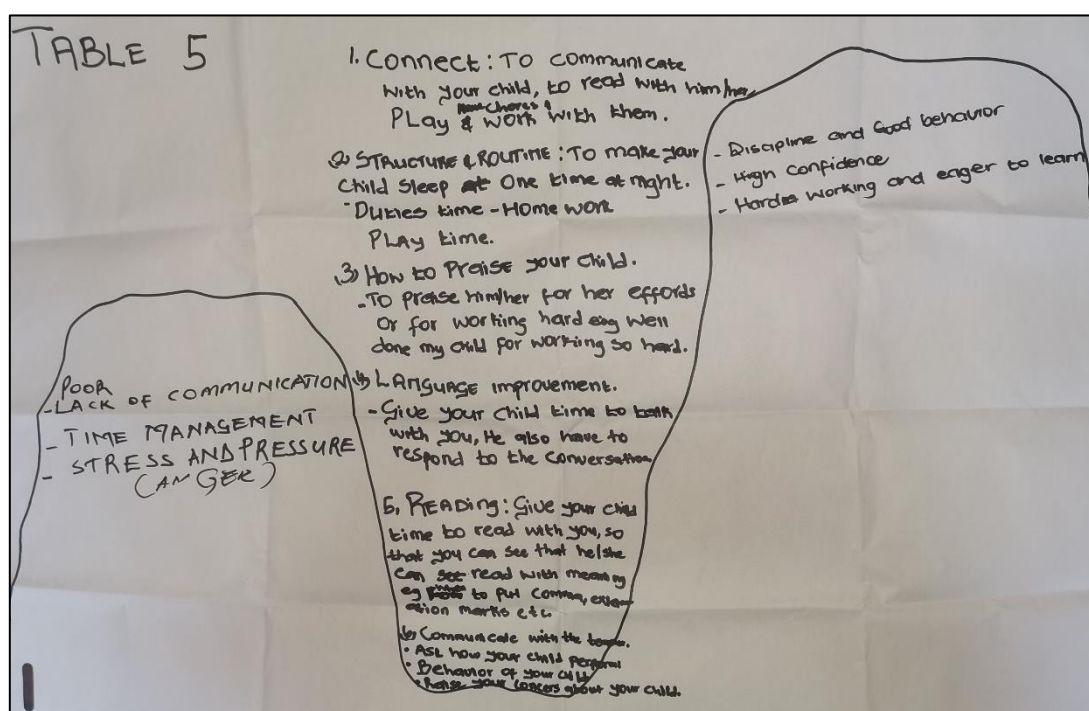 TABLE 5
1. Connect: To communicate
with your child, to read with him/her
Play & work with them.
2) STRUCTURE & ROUTINE: To make your
Child Sleep at One time at night.
- Duties time - Home work
Play time.
3) How to Praise your child.
- To praise him/her for her effords
Or for working hard eg Well
done my child for working so hard.
4) Language improvement.
- Give your child time to talk
with you, He also have to
respond to the conversation
5, Reading: Give your child
time to read with you, so
that you can see that he/she
can read with meaning
eg to put comma,
ation marks etc.
6) Communicate with the
• Ask how your child perform
• Behavior of your child
• Raise your concers about your child.
POOR
- LACK OF COMMUNICATION
- TIME MANAGEMENT
- STRESS AND PRESSURE
(ANGER)
- Discipline and Good behavior
- High confidence
- Hard working and eager to learn